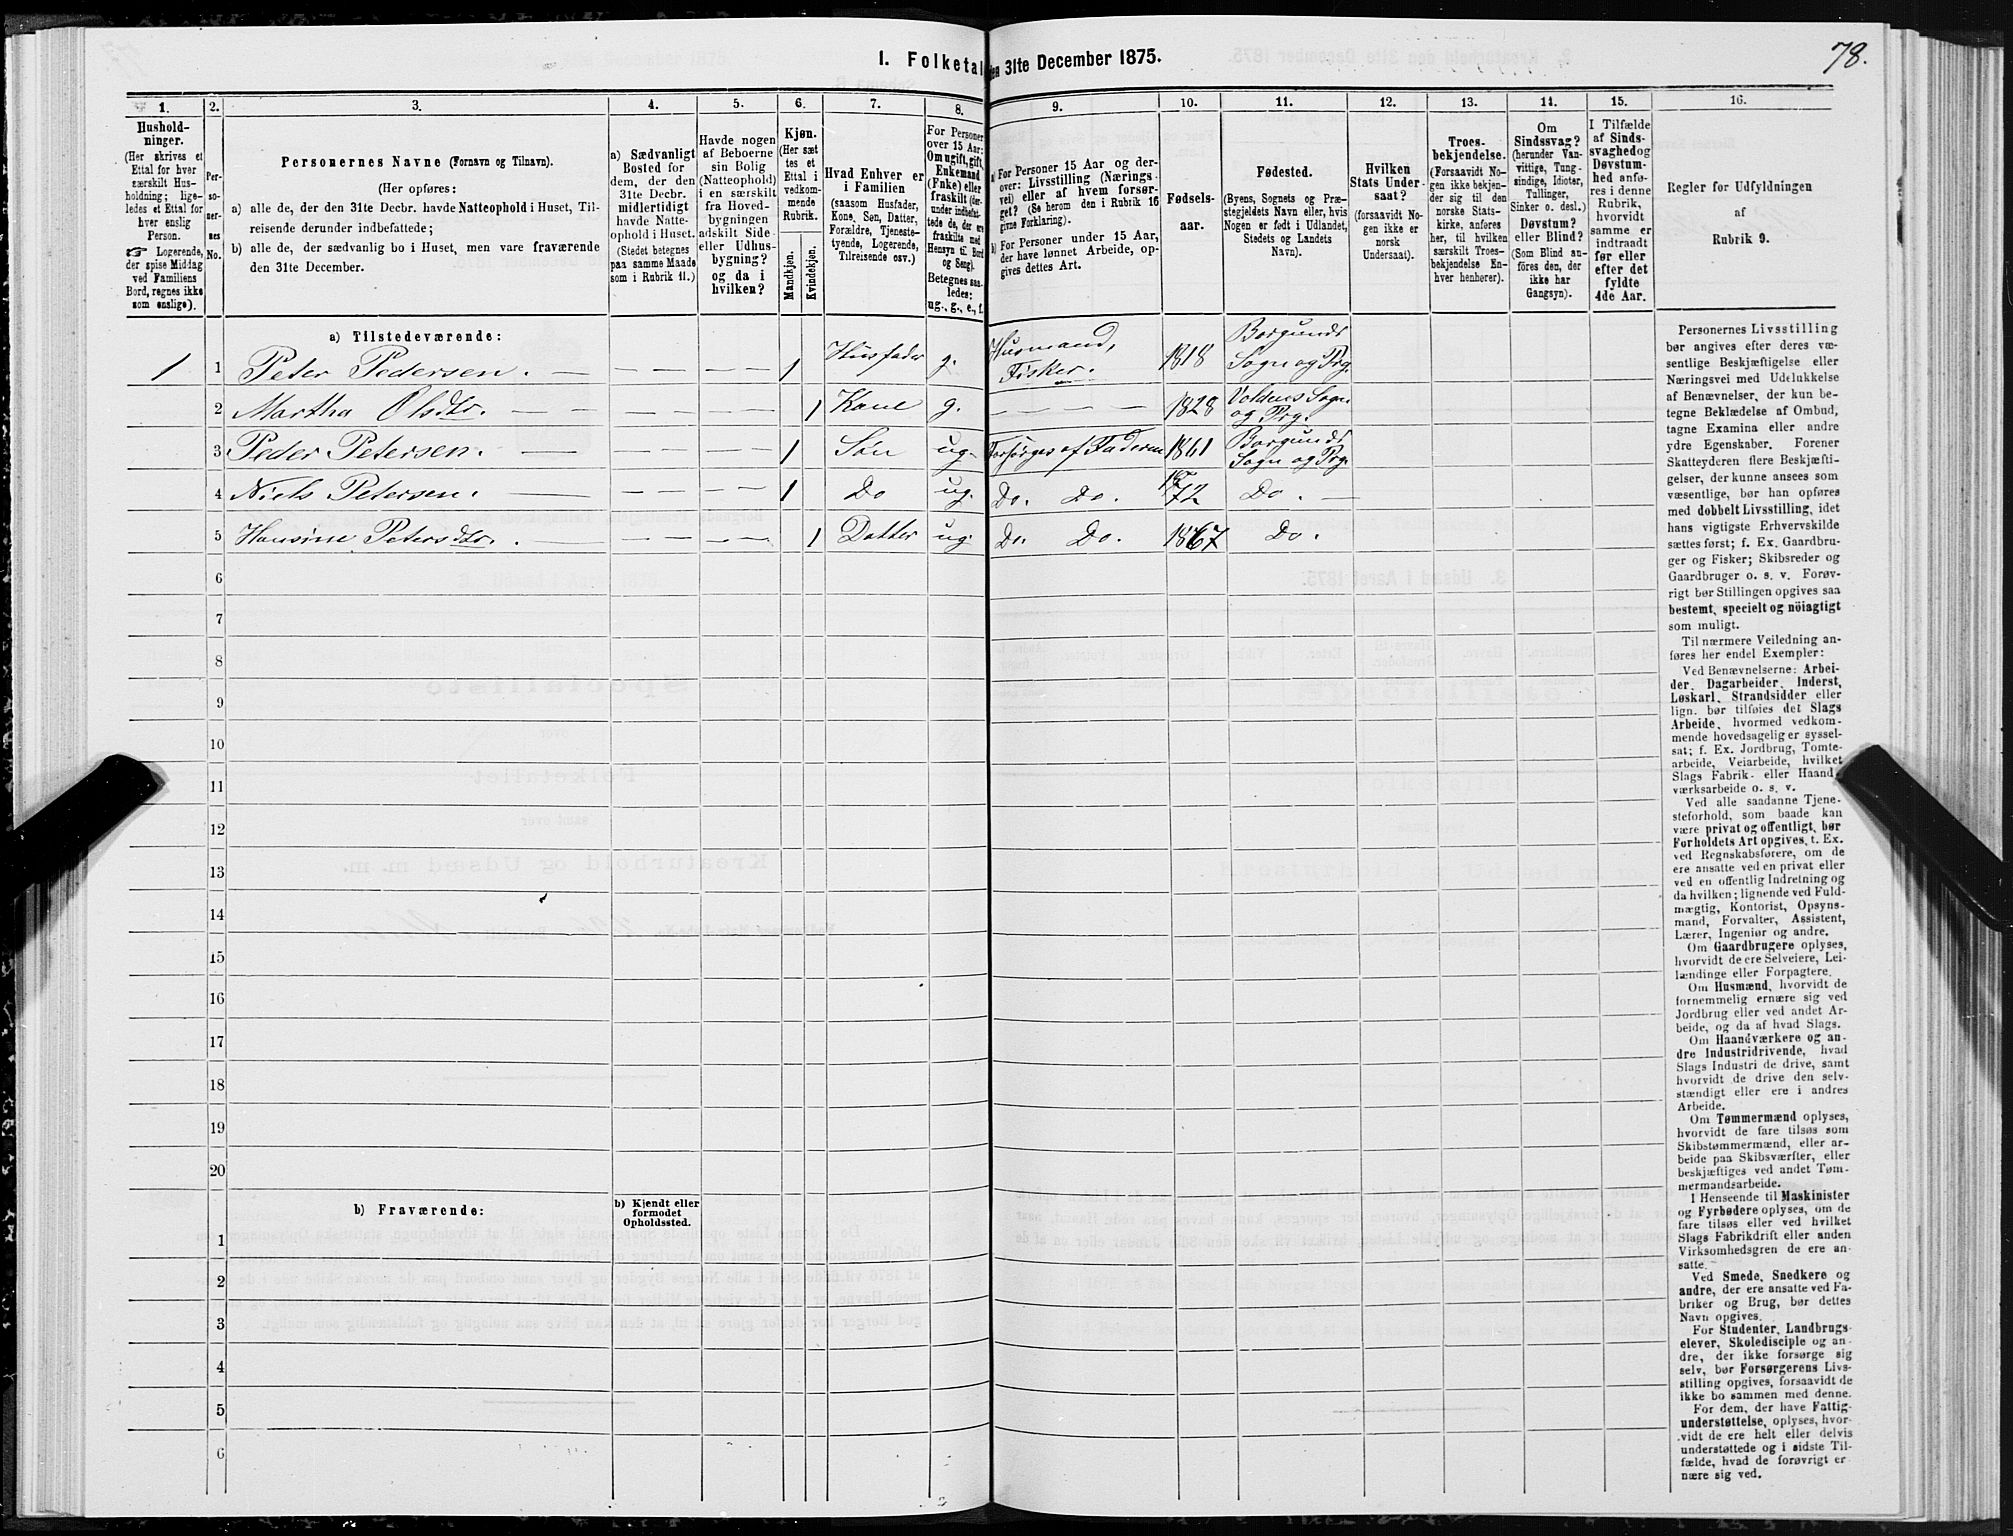 78.
I. Folketal den 31te December 1875.
1. 2. 3. 4. 5. 6. 7. 8. 9. 10. 11. 12. 13. 14. 15. 16.
Hushold-
ninger.
(Her skrives et
Ettal for hver
særskilt Hus-
holdning; lige-
ledes et Ettal for
hver enslig
Person.
☞ Logerende,
der spise Middag
ved Familiens
Bord, regnes ikke
som enslige).
Per-
so-
ner-
nes
No.
Personernes Navne (Fornavn og Tilnavn).
(Her opføres:
a) alle de, der den 31te Decbr. havde Natteophold i Huset, Til-
reisende derunder indbefattede;
b) alle de, der sædvanlig bo i Huset, men vare fraværende
den 31te December.
a) Sædvanligt
Bosted for
dem, der den
31te Decbr.
midlertidigt
havde Natte-
ophold i Huset.
(Stedet betegnes
paa samme Maade
som i Rubrik 11.)
Havde nogen
af Beboerne
sin Bolig
(Natteophold)
i en særskilt
fra Hoved-
bygningen
adskilt Side-
eller Udhus-
bygning?
og da i
hvilken?
Kjøn.
(Her sæt
tes et
Ettal i
vedkom-
mende
Rubrik.
Mandkjøn.
Kvindekjøn.
Hvad Enhver er
i Familien
(saasom Husfader,
Kone, Søn, Datter,
Forældre, Tjeneste-
tyende, Logerende,
Tilreisende osv.)
For Personer
over 15 Aar:
Om ugift, gift,
Enkemand
(Enke) eller
fraskilt (der-
under indbefat-
tede de, der ere
fraskilte med
Hensyn til Bord
og Seng).
Betegnes saa-
ledes:
ug., g., e., f.
a) For Personer 15 Aar og der-
over: Livsstilling (Nærings-
vei) eller af hvem forsør-
get? (Se herom den i Rubrik 16
givne Forklaring).
b) For Personer under 15 Aar,
der have lønnet Arbeide, op-
gives dettes Art.
Fødsels-
aar.
Fødested.
(Byens, Sognets og Præ-
stegjeldets Navn eller, hvis
Nogen er født i Udlandet,
Stedets og Landets
Navn).
Hvilken
Stats Under-
saat?
(forsaavidt No-
gen ikke er
norsk
Undersaat).
Troes-
bekjendelse.
(Forsaavidt No-
gen ikke bekjen-
der sig til den
norske Stats-
kirke, anføres
her, til hvilken
særskilt Troes-
bekjendelse En-
hver henhører).
Om
Sindssvag?
(herunder Van-
vittige, Tung-
sindige, Idioter,
Tullinger,
Sinker o. desl.)
Døvstum?
eller Blind?
(Som Blind an-
føres den, der
ikke har
Gangsyn).
I Tilfælde
af Sinds-
svaghed og
Døvstum-
hed anfø-
res i denne
Rubrik,
hvorvidt
samme er
indtraadt
før eller
efter det
fyldte
4de Aar.
Regler for Udfyldningen
af
Rubrik 9.
a) Tilstedeværende:
1 1 Peter Pedersen. — — — — — 1 Husfader g. Husmand, Fisker. 1818 Borgunds Sogn og Prg.
2 Martha Olsdtr. — — — — — 1 Kone g. — — — — 1828 Voldens Sogn og Prg.
3 Peder Petersen. — — — — — 1 Søn ug. Forsørges af Faderen 1861 Borgunds Sogn og Prg.
4 Niels Petersen. — — — — — 1 Do ug. Do. Do. 1872 Do. —
5 Hansine Petersdtr. — — — — 1 Datter ug. Do. Do. 1867 Do.
6
7
8
9
10
11
12
13
14
15
16
17
18
19
20
b) Fraværende:
b) Kjendt eller
formodet
Opholdssted.
1
2
3
4
5
6
Personernes Livsstilling
bør angives efter deres væ-
sentlige Beskjæftigelse eller
Næringsvei med Udelukkelse
af Benævnelser, der kun be-
tegne Beklædelse af Ombud,
tagne Examina eller andre
ydre Egenskaber. Forener
Skatteyderen flere Beskjæfti-
gelser, der kunne ansees som
væsentlige, bør han opføres
med dobbelt Livsstilling, idet
hans vigtigste Erhvervskilde
sættes først; f. Ex. Gaardbru-
ger og Fisker; Skibsreder og
Gaardbruger o. s. v. Forøv-
rigt bør Stillingen opgives saa
bestemt, specielt og nöiagtigt
som muligt.
Til nærmere Veiledning an-
føres her endel Exempler:
Ved Benævnelserne: Arbei-
der, Dagarbeider, Inderst,
Løskarl, Strandsidder eller
lign. bør tilføies det Slags
Arbeide, hvormed vedkom-
mende hovedsagelig er syssel-
sat; f. Ex. Jordbrug, Tomte-
arbeide, Veiarbeide, hvilket
Slags Fabrik- eller Haand-
værksarbeide o. s. v.
Ved alle saadanne Tjene-
steforhold, som baade kan
være privat og offentligt, bør
Forholdets Art opgives, f. Ex.
ved Regnskabsførere, om de
ere ansatte ved en privat eller
ved en offentlig Indretning og
da hvilken; lignende ved Fuld-
mægtig, Kontorist, Opsyns-
mand, Forvalter, Assistent,
Lærer, Ingeniør og andre.
Om Gaardbrugere oplyses,
hvorvidt de ere Selveiere, Lei-
lændinge eller Forpagtere.
Om Husmænd, hvorvidt de
fornemmelig ernære sig ved
Jordbrug eller ved andet Ar-
beide, og da af hvad Slags.
Om Haandværkere og an-
dre Industridrivende, hvad
Slags Industri de drive, samt
hvorvidt de drive den selv-
stændigt eller ere i andres
Arbeide.
Om Tømmermænd oplyses,
hvorvidt de fare tilsøs som
Skibstømmermænd, eller ar-
beide paa Skibsværfter, eller
beskjæftiges ved andet Tøm-
mermandsarbeide.
I Henseende til Maskinister
og Fyrbødere oplyses, om de
fare tilsøs eller ved hvilket
Slags Fabrikdrift eller anden
Virksomhedsgren de ere an-
satte.
Ved Smede, Snedkere og
andre, der ere ansatte ved Fa-
briker og Brug, bør dettes
Navn opgives.
For Studenter, Landbrugs-
elever, Skoledisciple og an-
dre, der ikke forsørge sig
selv, bør Forsørgerens Livs-
stilling opgives, forsaavidt de
ikke bo sammen med denne.
For dem, der have Fattig-
understøttelse, oplyses, hvor-
vidt de ere helt eller delvis
understøttede og i sidste Til-
fælde, hvad de forøvrigt er-
nære sig ved.